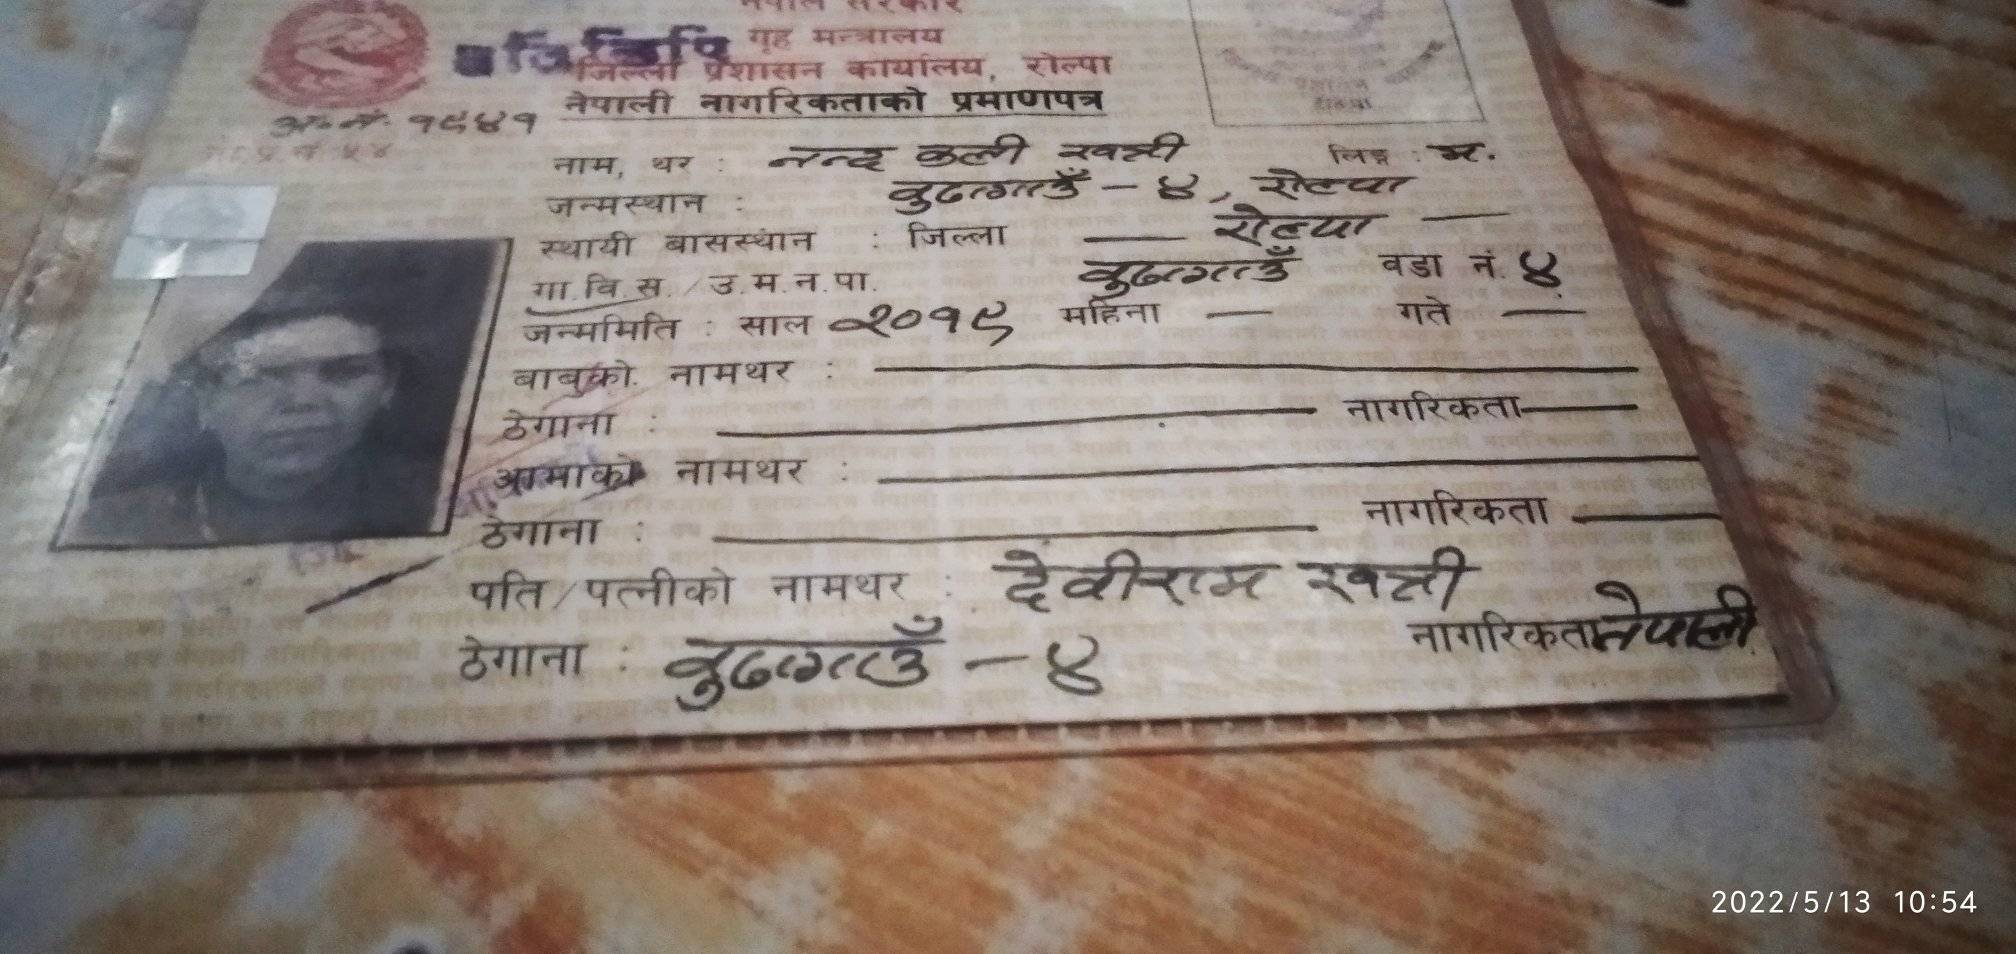 नेपाल सरकार
गृह मन्त्रालय
प्रतिलिपि
जिल्ला प्रशासन कार्यालय, रोल्पा
नेपाली नागरिकताको प्रमाणपत्र
१९४१
नाम, थर : नन्द कली खत्री लिङ्ग : म.
जन्मस्थान : बुढागाउँ - ४, रोल्पा
स्थायी बासस्थान : जिल्ला — रोल्पा —
गा.वि.स./उ.म.न.पा. बुढागाउँ वडा नं. ४
जन्ममिति : साल २०१९ महिना — गते —
बाबुको नामथर :
ठेगाना : नागरिकता
आमाको नामथर :
ठेगाना : नागरिकता
पति/पत्नीको नामथर : देवीराम खत्री
ठेगाना : बुढागाउँ - ४ नागरिकता नेपाली
2022/5/13 10:54